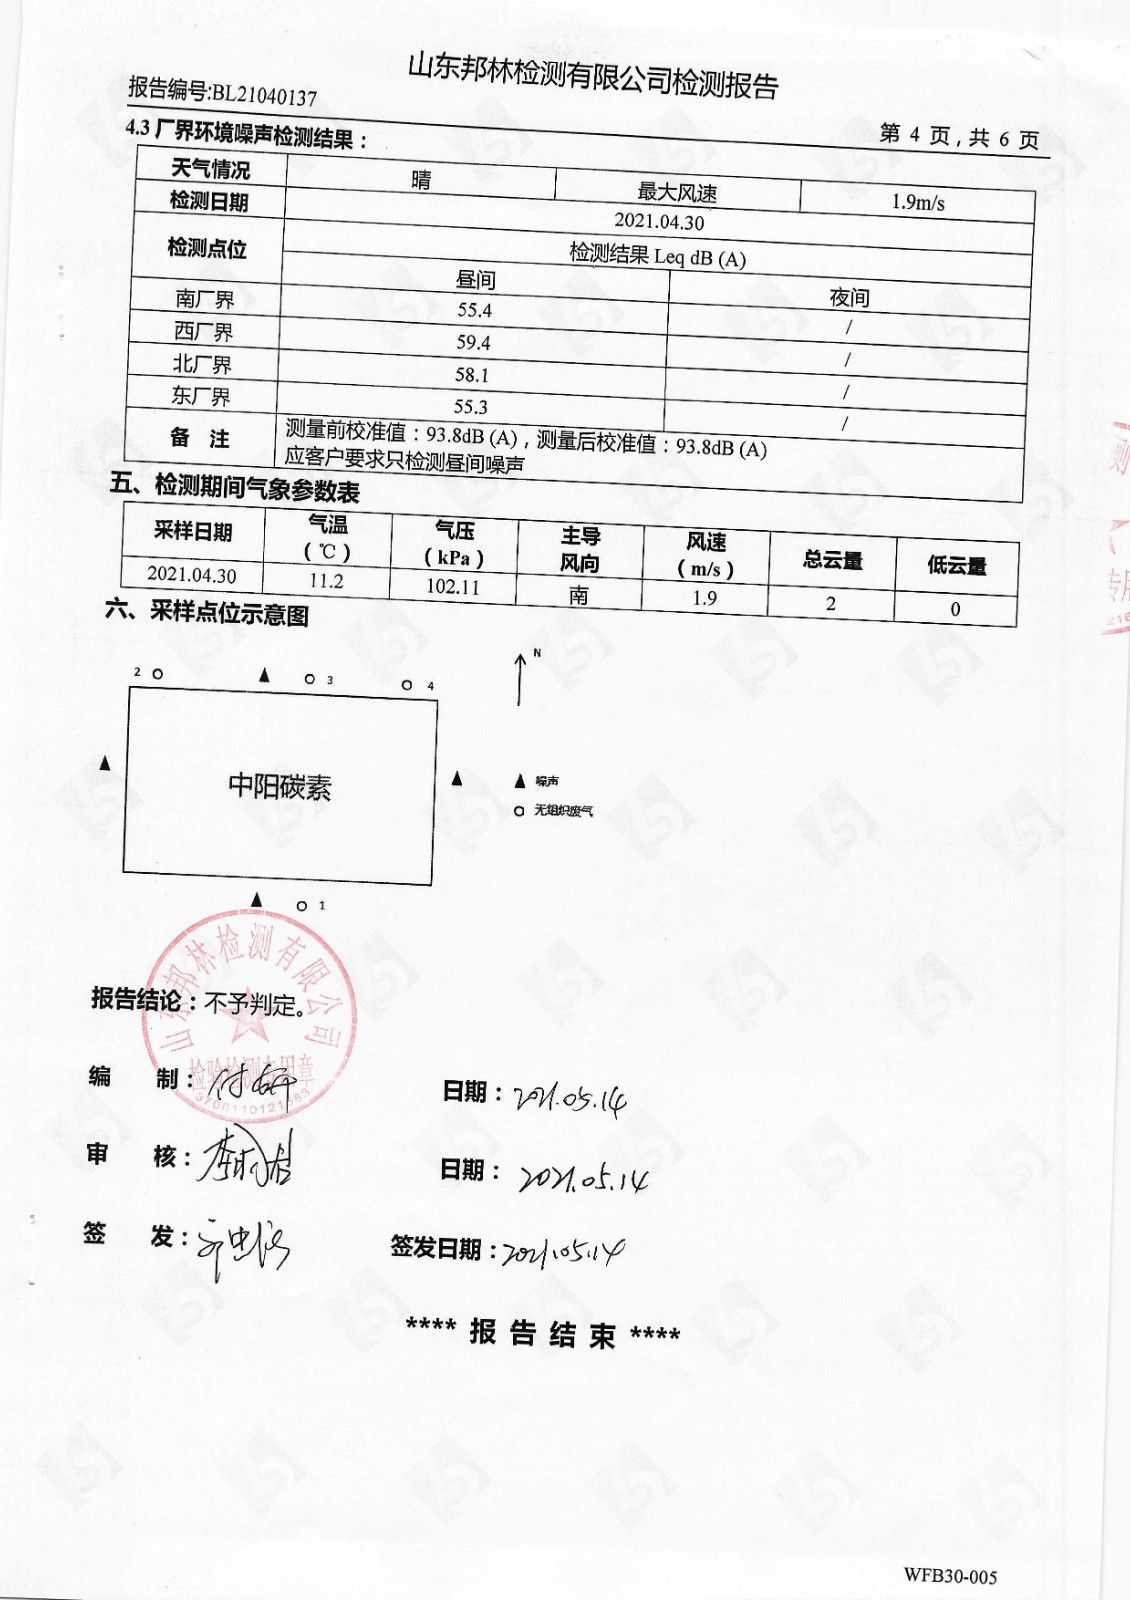 山东邦林检测有限公司检测报告
报告编号:BL21040137
第 4 页,共 6 页
4.3 厂界环境噪声检测结果：
天气情况 晴 最大风速 1.9m/s
检测日期 2021.04.30
检测点位 检测结果 Leq dB (A)
昼间 夜间
南厂界 55.4 /
西厂界 59.4 /
北厂界 58.1 /
东厂界 55.3 /
备 注 测量前校准值：93.8dB (A)，测量后校准值：93.8dB (A)
应客户要求只检测昼间噪声
五、检测期间气象参数表
采样日期 气温 气压 主导 风速 总云量 低云量
（℃） （kPa） 风向 （m/s）
2021.04.30 11.2 102.11 南 1.9 2 0
六、采样点位示意图
N
2 ○ ▲ ○ 3 ○ 4
▲ 中阳碳素 ▲
▲ 噪声
○ 无组织废气
▲ ○ 1
山东邦林检测有限公司
检验检测专用章
报告结论：不予判定。
编 制： 日期：2021.05.14
审 核： 日期：2021.05.14
签 发： 签发日期：2021.05.14
**** 报 告 结 束 ****
WFB30-005